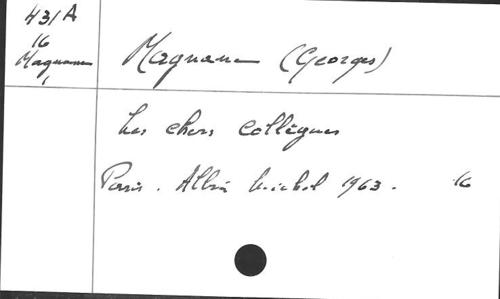 431A
16
Magnane
1
Magnane (Georges)
Les chers collègues
Paris. Albin Michel 1963. 16